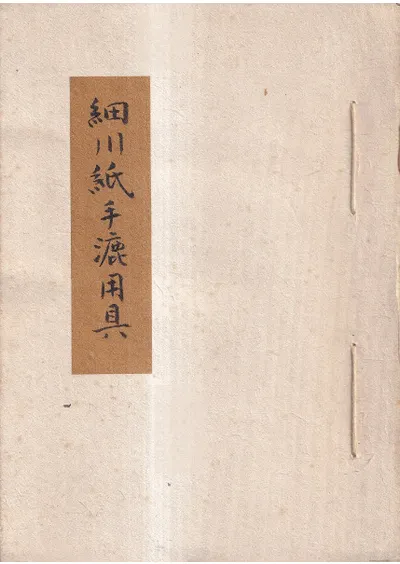 細川紙手漉用具